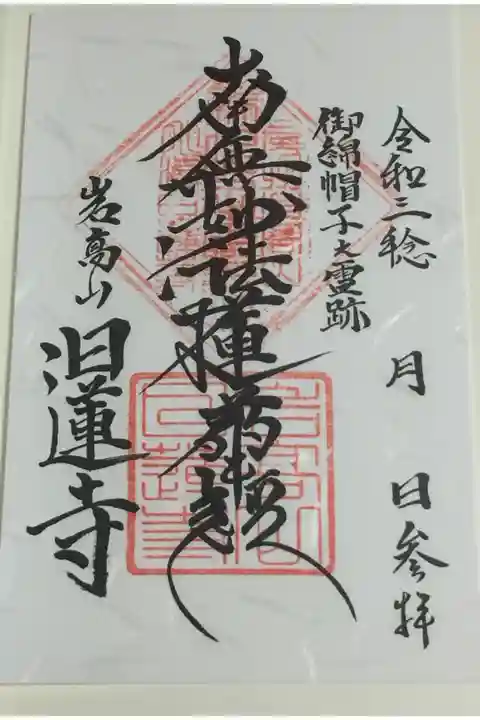 令和三稔 月 日参拝
御綿帽子之霊跡
南無妙法蓮華経
岩髙山
日蓮寺